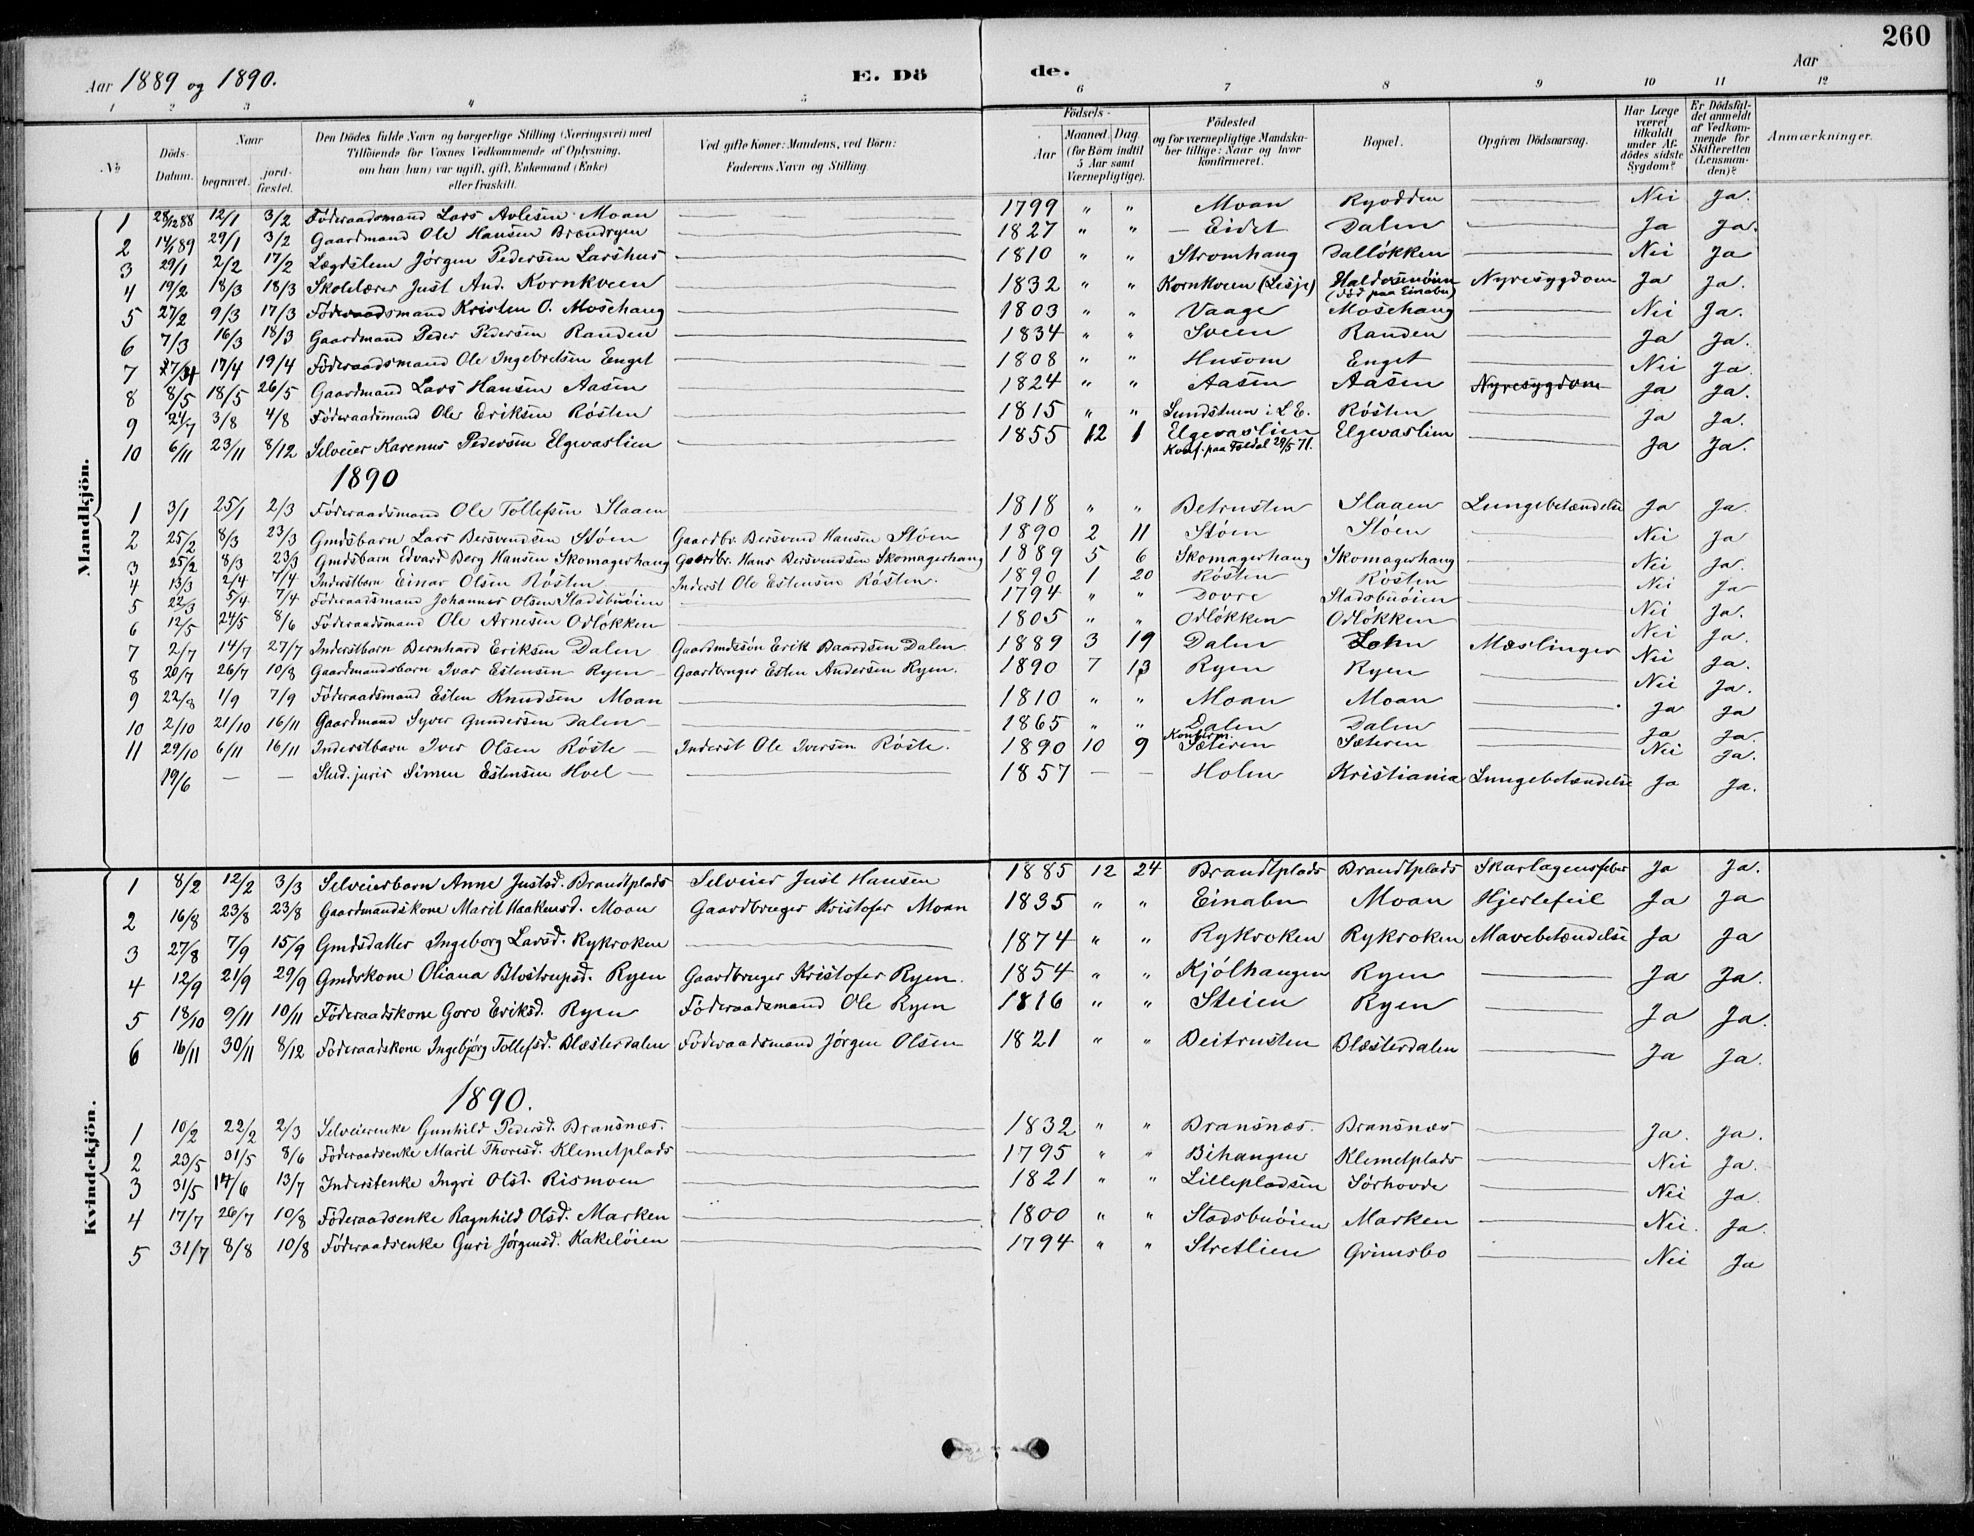 260
Aar 1889 og 1890. E. Dö de. Aar
1 2 3 4 5 6 7 8 9 10 11 12
No Döds-Datum. Naar begravet. jordfæstet. Den Dödes fulde Navn og borgerlige Stilling (Næringsvei) med Tilföiende for Voxnes Vedkommende af Oplysning, om han (hun) var ugift, gift, Enkemand (Enke) eller fraskilt. Ved gifte Koner: Mandens, ved Börn: Faderens Navn og Stilling. Födsels- Aar Maaned. Dag. (for Börn indtil 5 Aar samt Værnepligtige). Födested og for værnepligtige Mandskaber tillige: Naar og hvor konfirmeret. Bopæl. Opgiven Dödsaarsag. Har Læge været tilkaldt under Afdödes sidste Sygdom? Er Dödsfaldet anmeldt af Vedkommende for Skifteretten (Lensmanden)? Anmærkninger.
Mandkjön.
1 28/12 88 12/1 3/2 Föderaadsmand Lars Avlesen Moan 1799 " " Moan Ryodden Nei Ja.
2 14/1 89 29/1 3/2 Gaardmand Ole Hansen Brændryen 1827 " " Eidet Dalen Ja Ja.
3 29/1 2/2 17/2 Lægdslem Jørgen Pedersen Larshus 1810 " " Stromhaug Dalløkken Nei Ja
4 19/2 18/3 18/3 Skolelærer Just And. Kornkveen 1832 " " Kornkveen (Lesje) Haldorsenøien (död paa Einabu) Nyresygdom Ja Ja.
5 27/2 9/3 17/3 Föderaadsmand Kristen O. Mosehaug 1803 " " Vaage Mosehaug Nei Ja.
6 7/3 16/3 18/3 Gaardmand Peder Pedersen Randen 1834 " " Sveen Randen Ja Ja.
7 27/3 17/4 19/4 Föderaadsmand Ole Ingebretsen Enget 1808 " " Husom Enget Nei Ja.
8 8/5 18/5 26/5 Gaardmand Lars Hansen Aasen 1824 " " Aasen Aasen Nyresygdom Ja Ja.
9 24/7 3/8 4/8 Föderaadsmand Ole Eriksen Røsten 1815 " " Sundstuen i L.E. Røsten Ja Ja.
10 6/11 23/11 8/12 Selveier Karenus Pedersen Elgevaslien 1855 12 1 Elgevaslien Konf. paa Foldal 29/5 71. Elgevaslien Ja Ja.
1890
1 3/1 25/1 2/3 Föderaadsmand Ole Tollefsen Slaaen 1818 " " Betrusten Slaaen Lungebetændelse Ja Ja.
2 25/2 8/3 23/3 Gmdsbarn Lars Bersvendsen Støen Gaardbr. Bersvend Hansen Støen 1890 2 11 Støen Støen Nei Ja
3 25/2 8/3 23/3 Gmdsbarn Edvard Berg Hansen Skomagerhaug Gaardbr. Hans Bersvendsen Skomagerhaug 1889 5 6 Skomagerhaug Skomagerhaug Nei Ja.
4 13/3 2/4 7/4 Inderstbarn Einar Olsen Røsten Inderst Ole Estensen Røsten. 1890 1 20 Røsten Røsten Nei Ja
5 22/3 5/4 7/4 Föderaadsmand Johannes Olsen Stadsbuøien 1794 " " Dovre Stadsbuøien Nei Ja.
6 12/5 24/5 8/6 Föderaadsmand Ole Arnesen Odløkken 1805 " " Odløkken Odløkken Nei Ja.
7 2/7 14/7 27/7 Inderstbarn Bernhard Eriksen Dalen Gaardmdssøn Erik Baardsen Dalen 1889 3 19 Dalen Lohn Mæslinger Nei Ja.
8 20/7 26/7 10/8 Gaardmandsbarn Ivar Estensen Ryen Gaardbruger Esten Andersen Ryen. 1890 7 13 Ryen Ryen Nei Ja.
9 22/8 1/9 7/9 Föderaadsmand Esten Knudsen Moan 1810 " " Moan Moan Ja Ja
10 2/10 21/10 16/11 Gaardmand Syver Gundersen Dalen 1865 " " Dalen Konfirm. Dalen Ja Ja.
11 29/10 6/11 16/11 Inderstbarn Iver Olsen Røste Inderst Ole Iversen Røste. 1890 10 9 Sæteren Sæteren Nei Ja.
19/6 — — Stud. juris Simen Estensen Hoel 1857 — — Holen Kristiania Lungebetændelse Ja Ja.
Kvindekjön.
1 8/2 12/2 3/3 Selveierbarn Anne Justsd. Brandtplads Selveier Just Hansen 1885 12 24 Brandtplads Brandtplads Skarlagensfeber Ja Ja.
2 16/8 23/8 23/8 Gaardmandskone Marit Haakensd. Moan Gaardbruger Kristofer Moan 1835 " " Einabu Moan Hjertefeil Ja Ja
3 27/8 7/9 15/9 Gmdsdatter Ingeborg Larsd. Rykroken 1874 " " Rykroken Rykroken Mavebetændelse Ja Ja
4 12/9 21/9 29/9 Gmdskone Oliana Blostrupsd. Ryen Gaardbruger Kristofer Ryen. 1854 " " Kjølhaugen Ryen Ja Ja.
5 18/10 9/11 10/11 Föderaadskone Goro Eriksd. Ryen Föderaadsmand Ole Ryen 1816 " " Steien Ryen Ja Ja.
6 16/11 30/11 8/12 Föderaadskone Ingebjørg Tollefsd. Blæsterdalen Föderaadsmand Jørgen Olsen 1821 " " Beitrusten Blæsterdalen Ja Ja.
1890.
1 10/2 22/2 2/3 Selveierenke Gunhild Pedersd. Bransnæs. 1832 " " Bransnæs. Bransnæs Ja. Ja.
2 23/5 31/5 8/6 Föderaadsenke Marit Thoresd. Klemetplads 1795 " " Bihaugen Klemetplads Nei Ja.
3 31/5 14/6 13/7 Inderstenke Ingri Olsd. Rismoen 1821 " " Lillepladsen Sörhovde Nei Ja.
4 17/7 26/7 10/8 Föderaadsenke Ragnhild Olsd. Marken 1800 " " Stadsbuøien Marken Nei. Ja.
5 31/7 8/8 10/8 Föderaadsenke Guri Jørgensd. Kakeløien 1794 " " Stretlien Grimsbo Nei Ja